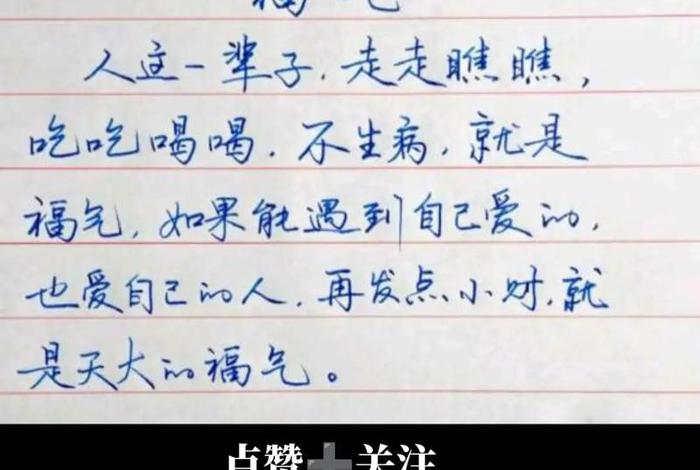 福气
人这一辈子,走走瞧瞧,
吃吃喝喝,不生病,就是
福气,如果能遇到自己爱的,
也爱自己的人,再发点小财,就
是天大的福气。
点赞➕关注